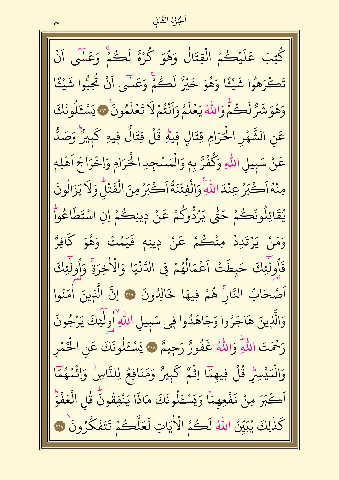 اَلْجُزْءُ الثَّانِي
كُتِبَ عَلَيْكُمُ الْقِتَالُ وَهُوَ كُرْهٌ لَكُمْۚ وَعَسٰٓى اَنْ
تَكْرَهُوا شَيْـًٔا وَهُوَ خَيْرٌ لَكُمْۚ وَعَسٰٓى اَنْ تُحِبُّوا شَيْـًٔا
وَهُوَ شَرٌّ لَكُمْۜ وَاللّٰهُ يَعْلَمُ وَاَنْتُمْ لَا تَعْلَمُونَ۟ يَسْـَٔلُونَكَ
عَنِ الشَّهْرِ الْحَرَامِ قِتَالٍ فِيهِۜ قُلْ قِتَالٌ فِيهِ كَبِيرٌۜ وَصَدٌّ
عَنْ سَبِيلِ اللّٰهِ وَكُفْرٌ بِهِ وَالْمَسْجِدِ الْحَرَامِ وَاِخْرَاجُ اَهْلِهِ
مِنْهُ اَكْبَرُ عِنْدَ اللّٰهِۚ وَالْفِتْنَةُ اَكْبَرُ مِنَ الْقَتْلِۜ وَلَا يَزَالُونَ
يُقَاتِلُونَكُمْ حَتّٰى يَرُدُّوكُمْ عَنْ دِينِكُمْ اِنِ اسْتَطَاعُواۜ
وَمَنْ يَرْتَدِدْ مِنْكُمْ عَنْ دِينِهِ فَيَمُتْ وَهُوَ كَافِرٌ
فَاُو۬لٰٓئِكَ حَبِطَتْ اَعْمَالُهُمْ فِي الدُّنْيَا وَالْاٰخِرَةِۚ وَاُو۬لٰٓئِكَ
اَصْحَابُ النَّارِۚ هُمْ فِيهَا خَالِدُونَ اِنَّ الَّذِينَ اٰمَنُوا
وَالَّذِينَ هَاجَرُوا وَجَاهَدُوا فِي سَبِيلِ اللّٰهِۙ اُو۬لٰٓئِكَ يَرْجُونَ
رَحْمَتَ اللّٰهِۜ وَاللّٰهُ غَفُورٌ رَحِيمٌ يَسْـَٔلُونَكَ عَنِ الْخَمْرِ
وَالْمَيْسِرِۜ قُلْ فِيهِمَٓا اِثْمٌ كَبِيرٌ وَمَنَافِعُ لِلنَّاسِۘ وَاِثْمُهُمَٓا
اَكْبَرُ مِنْ نَفْعِهِمَاۜ وَيَسْـَٔلُونَكَ مَاذَا يُنْفِقُونَۜ قُلِ الْعَفْوَۜ
كَذٰلِكَ يُبَيِّنُ اللّٰهُ لَكُمُ الْاٰيَاتِ لَعَلَّكُمْ تَتَفَكَّرُونَۙ